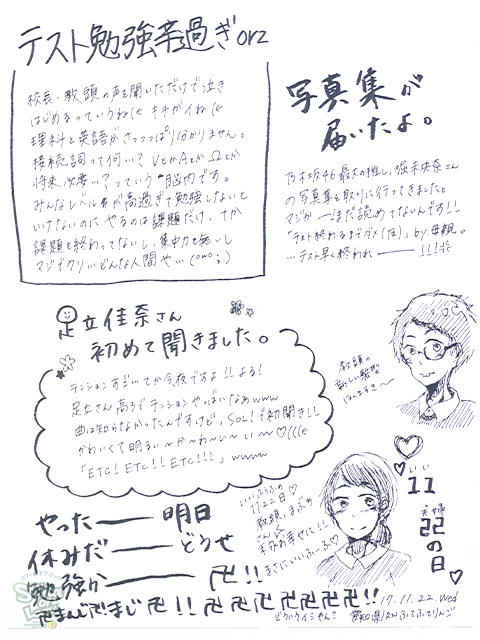 テスト勉強辛過ぎorz
校長・教頭の声を聞いただけで泣き
はじめるっていうね(ㄟ キチガイね(ㄟ
理科と英語がさっっっぱり分かりません。
接続詞って何い? VとかAとかΩとか
将来必要い?っていう脳内です。
みんなレベルが高過ぎて勉強しないと
いけないのにやるのは課題だけ、てか
課題も終わってないし、集中力も無いし
マジでクソ…どんな人間や…
写真集が
届いたよ。
乃木坂46最大の推し、堀未央奈さん
の写真集を取りに行ってきました。
マジか――!まだ読めてないんです!!
「テスト終わるまでダメ(圧)」by母親。
…テスト早く終われ――!!!
足立佳奈さん
初めて聞きました。
テンションすごいてか今夜ですよ!!よる!
足立さん高ぶるテンションやっばいなぁwww
曲は知らなかったんですけど、SOL!で初聞き!!
かわいくて明るい~か~わ~い~い~♡(((
「ETC!ETC!!ETC!!!」wwww
教頭の
新しい髪型
いい
11
夫婦
22の日
いいふうふの
11.22♡
教頭、まぶの
さん
末永くお幸せに!!
まさにいいふーふ♡
やったー――明日
休みだ――どうせ
勉強か――卍!!
卍まんじ卍まじ卍!!卍卍卍卍卍卍卍!!
17.11.22.Wed
愛知県/RNふてふてりんご